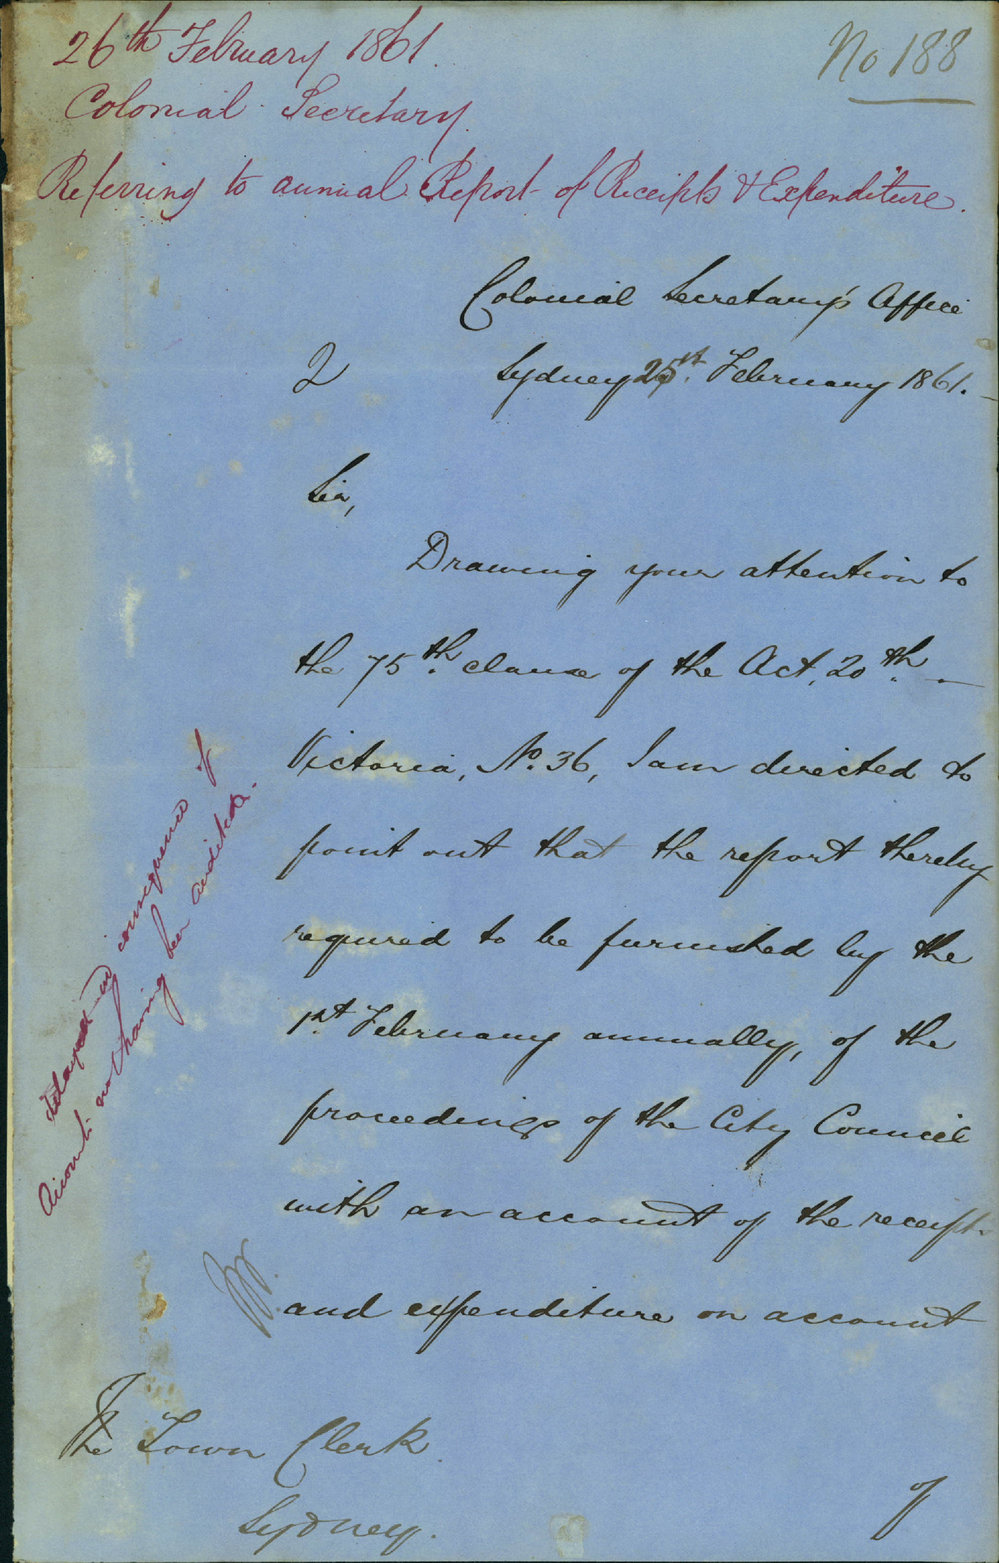 26th February 1861.
No 188
Colonial Secretary
Referring to annual Report of Receipts & Expenditure.
Colonial Secretary's Office
2
Sydney 25st. February 1861.
Sir,
Drawing your attention to
the 75th. clause of the Act, 20th.
Victoria, No. 36, I am directed to
point out that the report thereby
required to be furnished by the
1st February annually, of the
proceedings of the City Council
with an account of the receipt
and expenditure on account
The Town Clerk
Sydney.
of
delayed in consequence of
Accounts not having been audited.